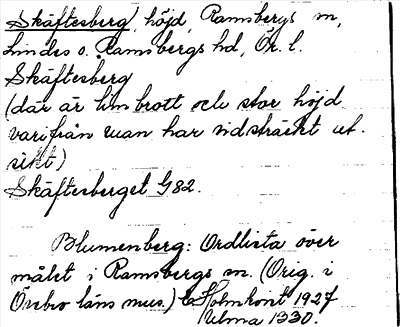 Skäftesberg, höjd, Ramsbergs sn,
Lindes o. Ramsbergs hd, Ör. l.
Skäftesberg
(där är limbrott och stor höjd
varifrån man har vidsträckt ut-
sikt)
Skäftesberget G82.
Blumenberg: Ordlista över
målet i Ramsbergs sn. (Orig. i
Örebro läns mus.) Holmkvist 1927
Ulma 1330.